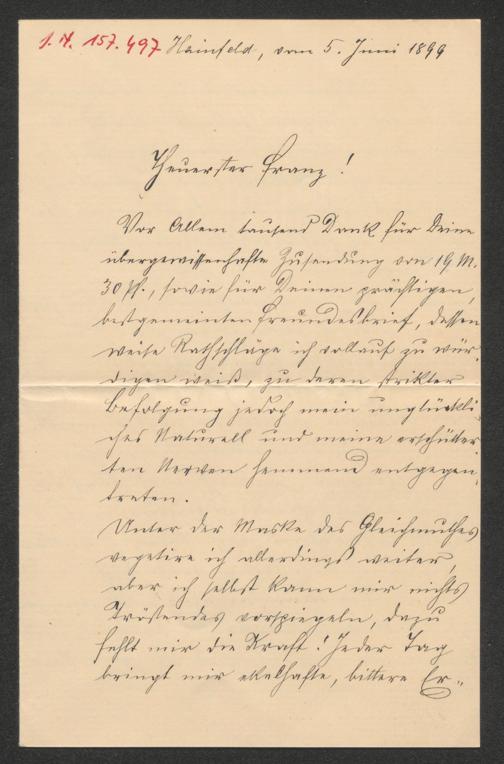 I. N. 157.497 Hainfeld, vom 5. Juni 1899
Theuerster Franz!
Vor Allem tausend Dank für Deine
übergewissenhafte Zusendung von 19 M.
30 Pf., sowie für Deinen prächtigen,
bestgemeinten Freundesbrief, dessen
weise Rathschläge ich vollauf zu wür-
digen weiß, zu deren strikter
Befolgung jedoch mein unglückli-
ches Naturell und meine erschütter-
ten Nerven hemmend entgegen
treten.
Unter der Maske des Gleichmuthes
vegetire ich allerdings weiter,
aber ich selbst kann mir nichts
Tröstendes vorspiegeln, dazu
fehlt mir die Kraft! Jeder Tag
bringt mir ekelhafte, bittere Er-